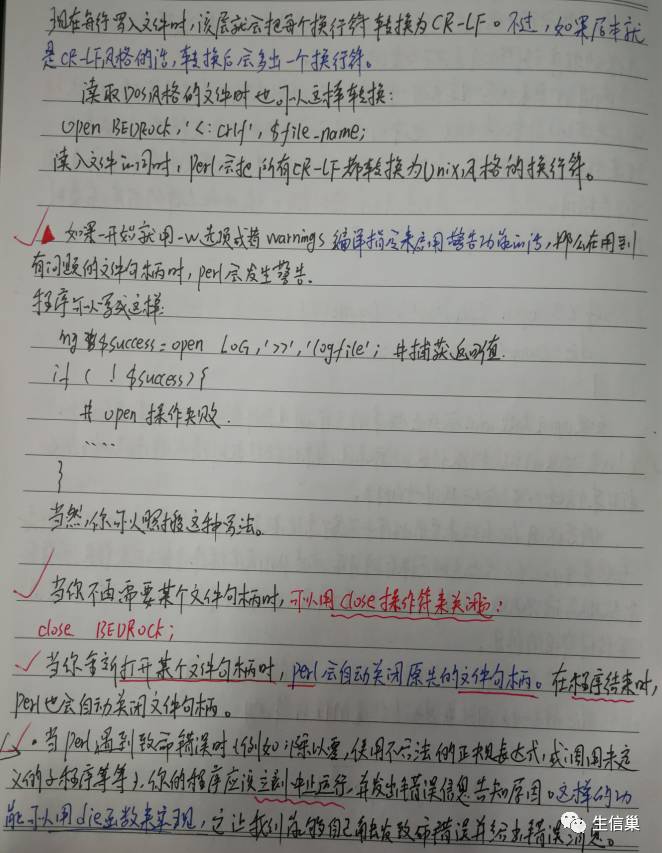 现在每行写入文件时，该层就会把每个换行符转换为CR-LF。不过，如果原本就
是CR-LF风格的话，转换后会多出一个换行符。
读取DOS风格的文件时也可以这样转换：
open BEDROCK,'<:crlf',$file_name;
读入文件的同时，perl会把所有CR-LF都转换为Unix风格的换行符。
如果一开始就用-w选项或者warnings编译指令来启用警告功能的话，那么在用到
有问题的文件句柄时，perl会发生警告。
程序可以写成这样：
my $success=open LOG,'>>','logfile'; #捕获返回值.
if ( ! $success) {
# open 操作失败.
....
}
当然，你可以照搬这种写法。
当你不再需要某个文件句柄时，可以用close操作符来关闭：
close BEDROCK;
当你重新打开某个文件句柄时，perl会自动关闭原先的文件句柄。在程序结束时，
perl也会自动关闭文件句柄。
·当perl遇到致命错误时（例如：除以零，使用不合法的正规表达式，或调用未定
义的子程序等等），你的程序应该立刻中止运行，并发出错误信息告知原因。这样的功
能可以用die函数来实现，它让我们能够自己触发致命错误并给出错误消息。
生信巢